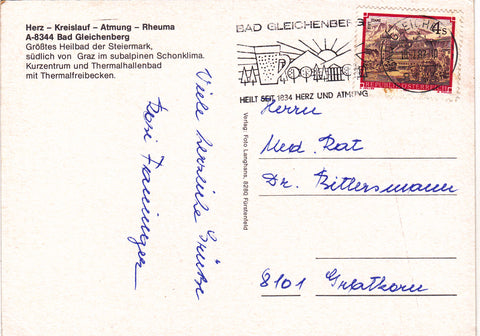 Herz – Kreislauf – Atmung – Rheuma
A-8344 Bad Gleichenberg
Größtes Heilbad der Steiermark,
südlich von Graz im subalpinen Schonklima.
Kurzentrum und Thermalhallenbad
mit Thermalfreibecken.
BAD GLEICHENBERG
HEILT SEIT 1834 HERZ UND ATMUNG
4s
REPUBLIK ÖSTERREICH
Viele herzliche Grüße
Verlag: Foto Langhans, 8280 Fürstenfeld
Herrn
Med. Rat
Dr. Bittersmann
8101 Gratkorn